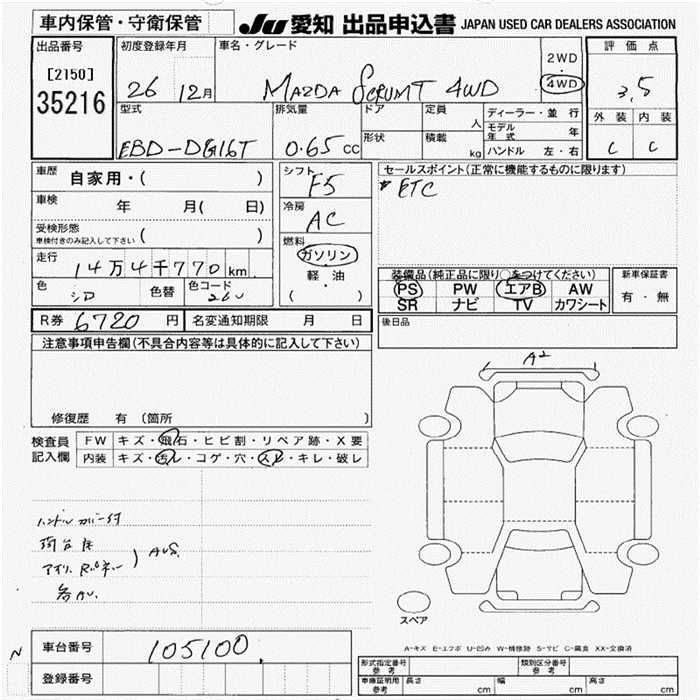 車内保管・守衛保管
JU 愛知 出品申込書 JAPAN USED CAR DEALERS ASSOCIATION
出品番号
[2150]
35216
初度登録年月
26 12月
車名・グレード
MAZDA SCRUMT 4WD
2WD
4WD
評価点
3.5
外装 内装
C C
型式
EBD-DG16T
排気量
0.65 CC
ドア
形状
定員
人
積載
kg
ディーラー・並行
モデル年式 年
ハンドル 左・右
車歴 自家用・( )
車検 年 月( 日)
受検形態
車検付きのみ記入して下さい ( )
走行 14万4千770km
色 シロ 色替 色コード 26U
シフト
F5
冷房
AC
燃料
ガソリン
軽・油
( )
セールスポイント(正常に機能するものに限ります)
ETC
装備品(純正品に限り○をつけてください)
PS PW エアB AW
SR ナビ TV カワシート
新車保証書
有・無
後日品
R券 6720円 名変通知期限 月 日
注意事項申告欄(不具合内容等は具体的に記入して下さい)
修復歴 有 (箇所 )
検査員
記入欄
FW キズ・飛石・ヒビ割・リペア跡・X要
内装 キズ・汚レ・コゲ・穴・スレ・キレ・破レ
ハンドルカバー付
A2
スペア
A-キズ E-エクボ U-凹み W-補修跡 S-サビ C-腐食 XX-交換済
N
車台番号 105100
登録番号
形式指定番号 参考
類別区分番号 参考
車庫証明用 参考 長さ cm 幅 cm 高さ cm